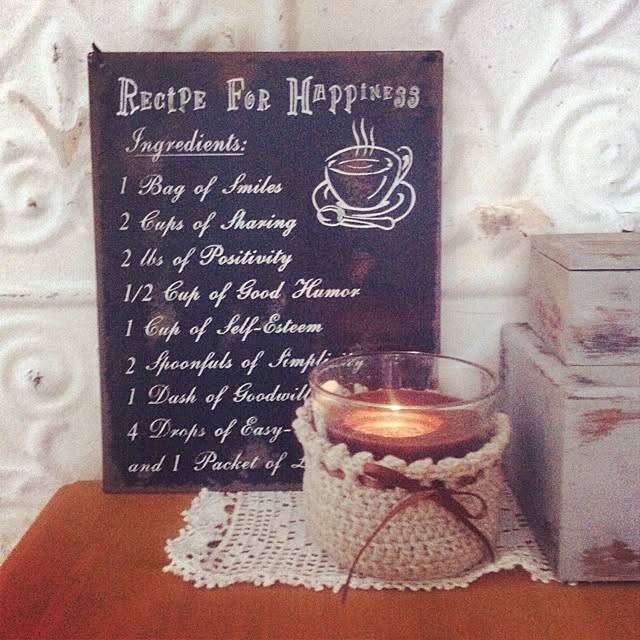 Recipe For Happiness
Ingredients:
1 Bag of Smiles
2 Cups of Sharing
2 lbs of Positivity
1/2 Cup of Good Humor
1 Cup of Self-Esteem
2 Spoonfuls of Simplicity
1 Dash of Goodwill
4 Drops of Easy-
and 1 Packet of